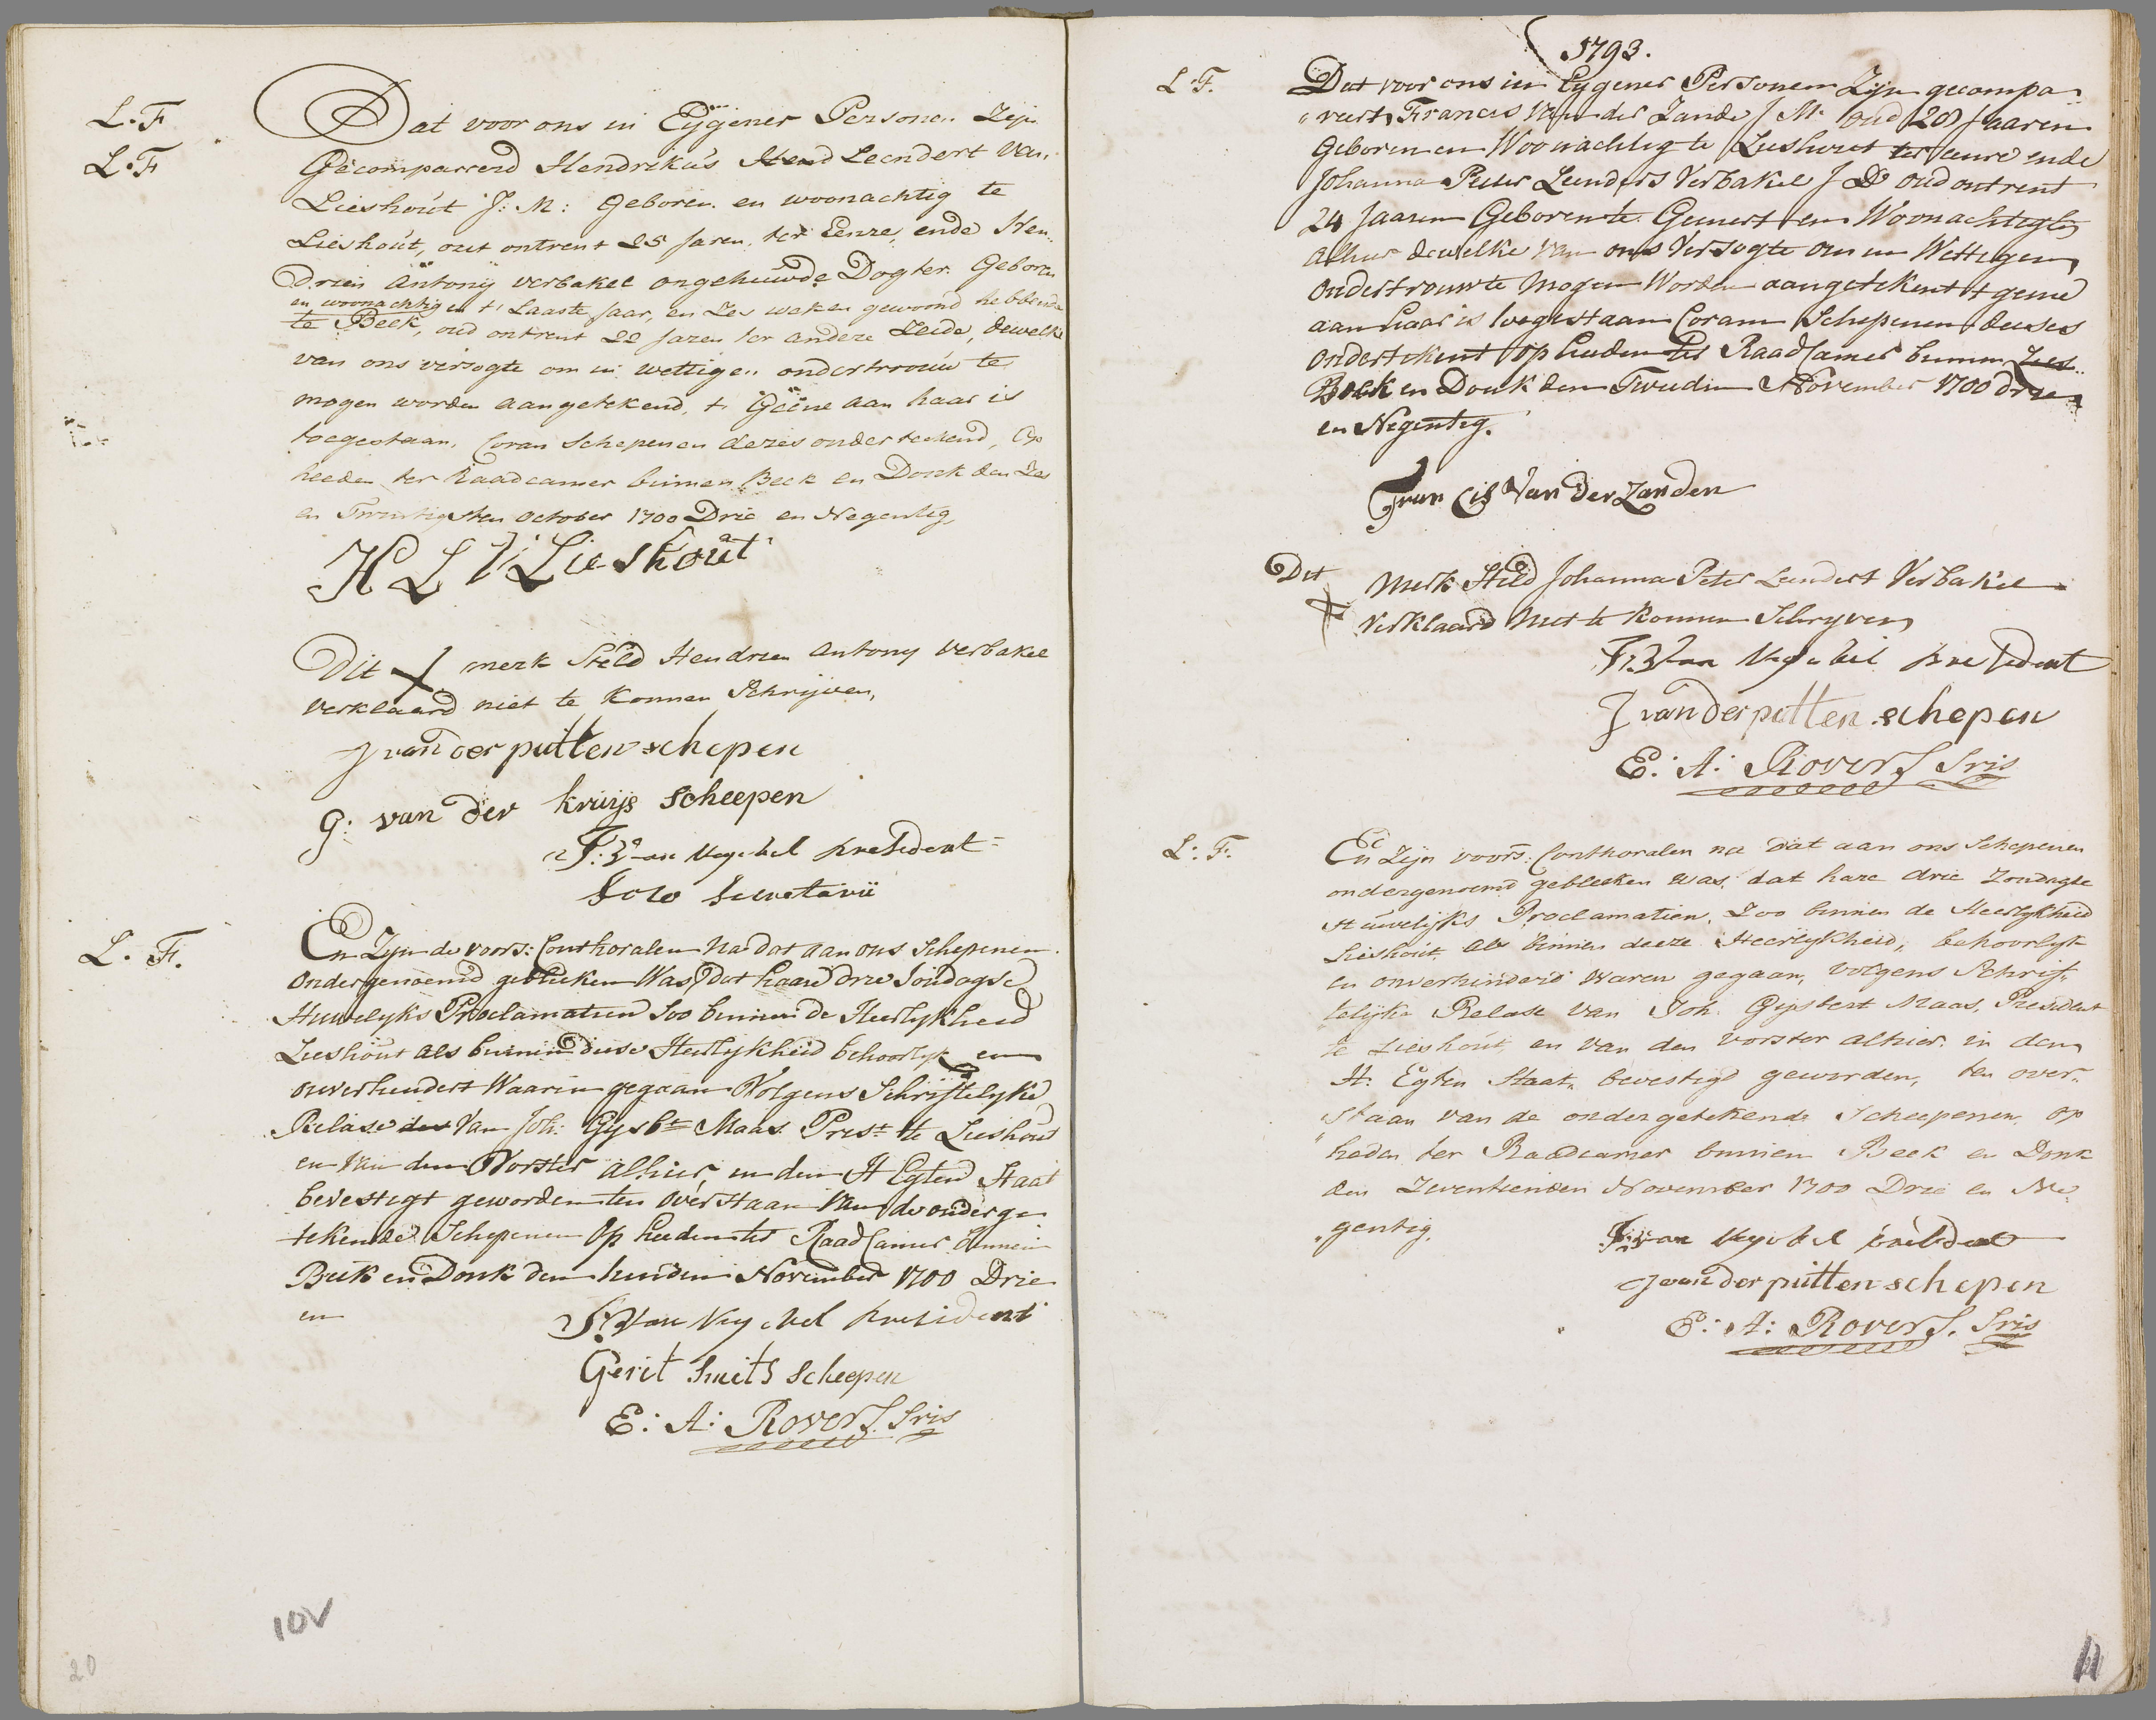 L. F
L. F
Dat voor ons in Eijgener Personen Zijn
Gecomparreerd Hendrikus Hend Leendert Van
Lieshout J: M: Geboren en woonachtig te
Lieshout, out ontrent 25 Jaren, ter Eenre, ende Hen-
drien Antonij verbakel ongehuwde Dogter Geboren
en woonachtig en t' Laaste Jaar, en Zes weken gewoond hebbende
te Beek, oud ontrent 22 Jaren ter andere Zeide, dewelke
van ons versogte om in wettigen ondertrouw te
mogen worden aangetekend, t' Geene aan haar is
toegestaan, Coram Schepenen dezes onderteekend, Op
heeden ter Raadcamer binnen Beek en Donk den Zes
en Twintigsten October 1700 Drie en Negentig
H L V Lieshout
Dit merk Steld Hendrien Antony Verbakel
Verklaard niet te konnen Schrijven,
J van der putten schepen
G: van der kruijs Scheepen
F: van Veghel president
Loco Secretarii
L. F.
En Zijn de voors: Conthoralen Na dat aan ons Schepenen
Ondergenoemd gebleeken Was, dat haare drie Sondagse
Huwelyks Proclamatien Soo binnen de Heerlykheid
Lieshout als binnen dese Heerlykheid behoorlyk en
onverhindert Waaren gegaan Volgens Schriftelyke
Relase des Van Joh: Gysbt Maas Prest te Lieshout
en Van den Vorster alhier, in den H Egten Staat
bevestigt geworden ten overstaan Van de onderge
tekende Schepenen Op heeden ter Raad Camer binnen
Beek en Donk den tienden November 1700 Drie
en
F: van Veghel president
Gerit Smits Scheepen
E: A: Rovers. Sris
10V
20
1793.
L. F.
Dat voor ons in Eygener Personen Zijn gecompa-
reert Francis Van der Zande J M: oud 28 Jaaren
Geboren en Woonachtig te Lieshout ter eenre ende
Johanna Peter Leenders Verbakel J D oud ontrent
24 Jaaren Geboren te Gemert en Woonachtigh
alhier dewelke Van ons Versogte om in Wettigen
Ondertrouw te Mogen Worden aangetekent t geene
aan haar is toegestaan Coram Schepenen deeses
Ondertekent Op heeden ter Raad Camer binnen Lies
Beek en Donk den Tweeden November 1700 drie
en Negentig.
Francis Van der Zanden
Dit Merk Steld Johanna Peter Leendert Verbakel
Verklaard Niet te konnen Schryven
F: van Veghel president
J van der putten schepen
E: A: Rovers Sris
L: F.
En Zijn voors: Conthoralen na dat aan ons Schepenen
ondergenoemd gebleeken was, dat hare drie Zondagse
Huwelijks Proclamatien, Zoo binnen de Heerlykheid
Lieshout, als binnen deeze Heerlykheid, behoorlyk
en onverhinderd waren gegaan, volgens Schrif-
telijke Relase van Joh. Gysbert Maas, President
te Lieshout, en van den vorster alhier in den
H. Egten Staat, bevestigd geworden, ten over-
staan van de ondergetekende Scheepenen, op
heden ter Raadcamer binnen Beek en Donk
den Zeventienden November 1700 Drie en Ne
gentig.
F: van Veghel president
J van der putten schepen
E: A: Rovers. Sris
11